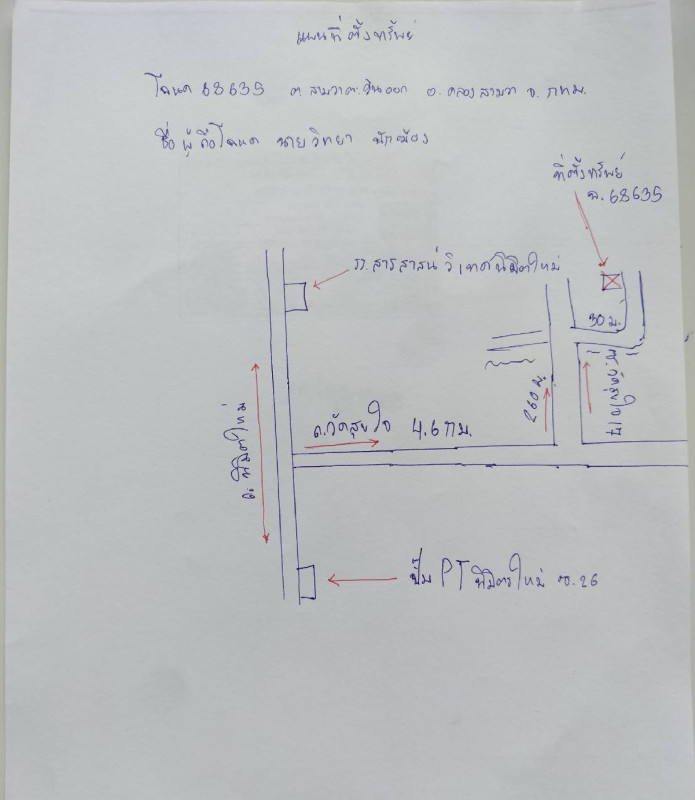 แผนที่ตั้งทรัพย์
โฉนด 68635 ต.สามวาตะวันออก อ.คลองสามวา จ.กทม.
ชื่อผู้ถือโฉนด นายวิทยา
ที่ตั้งทรัพย์
ฉ.68635
รร.สารสาสน์วิเทศนิมิตใหม่
30 ม.
260 ม.
ถ.วัดสุขใจ 4.6 กม.
ถ.นิมิตใหม่
ปั๊ม PT นิมิตรใหม่ ซ.26